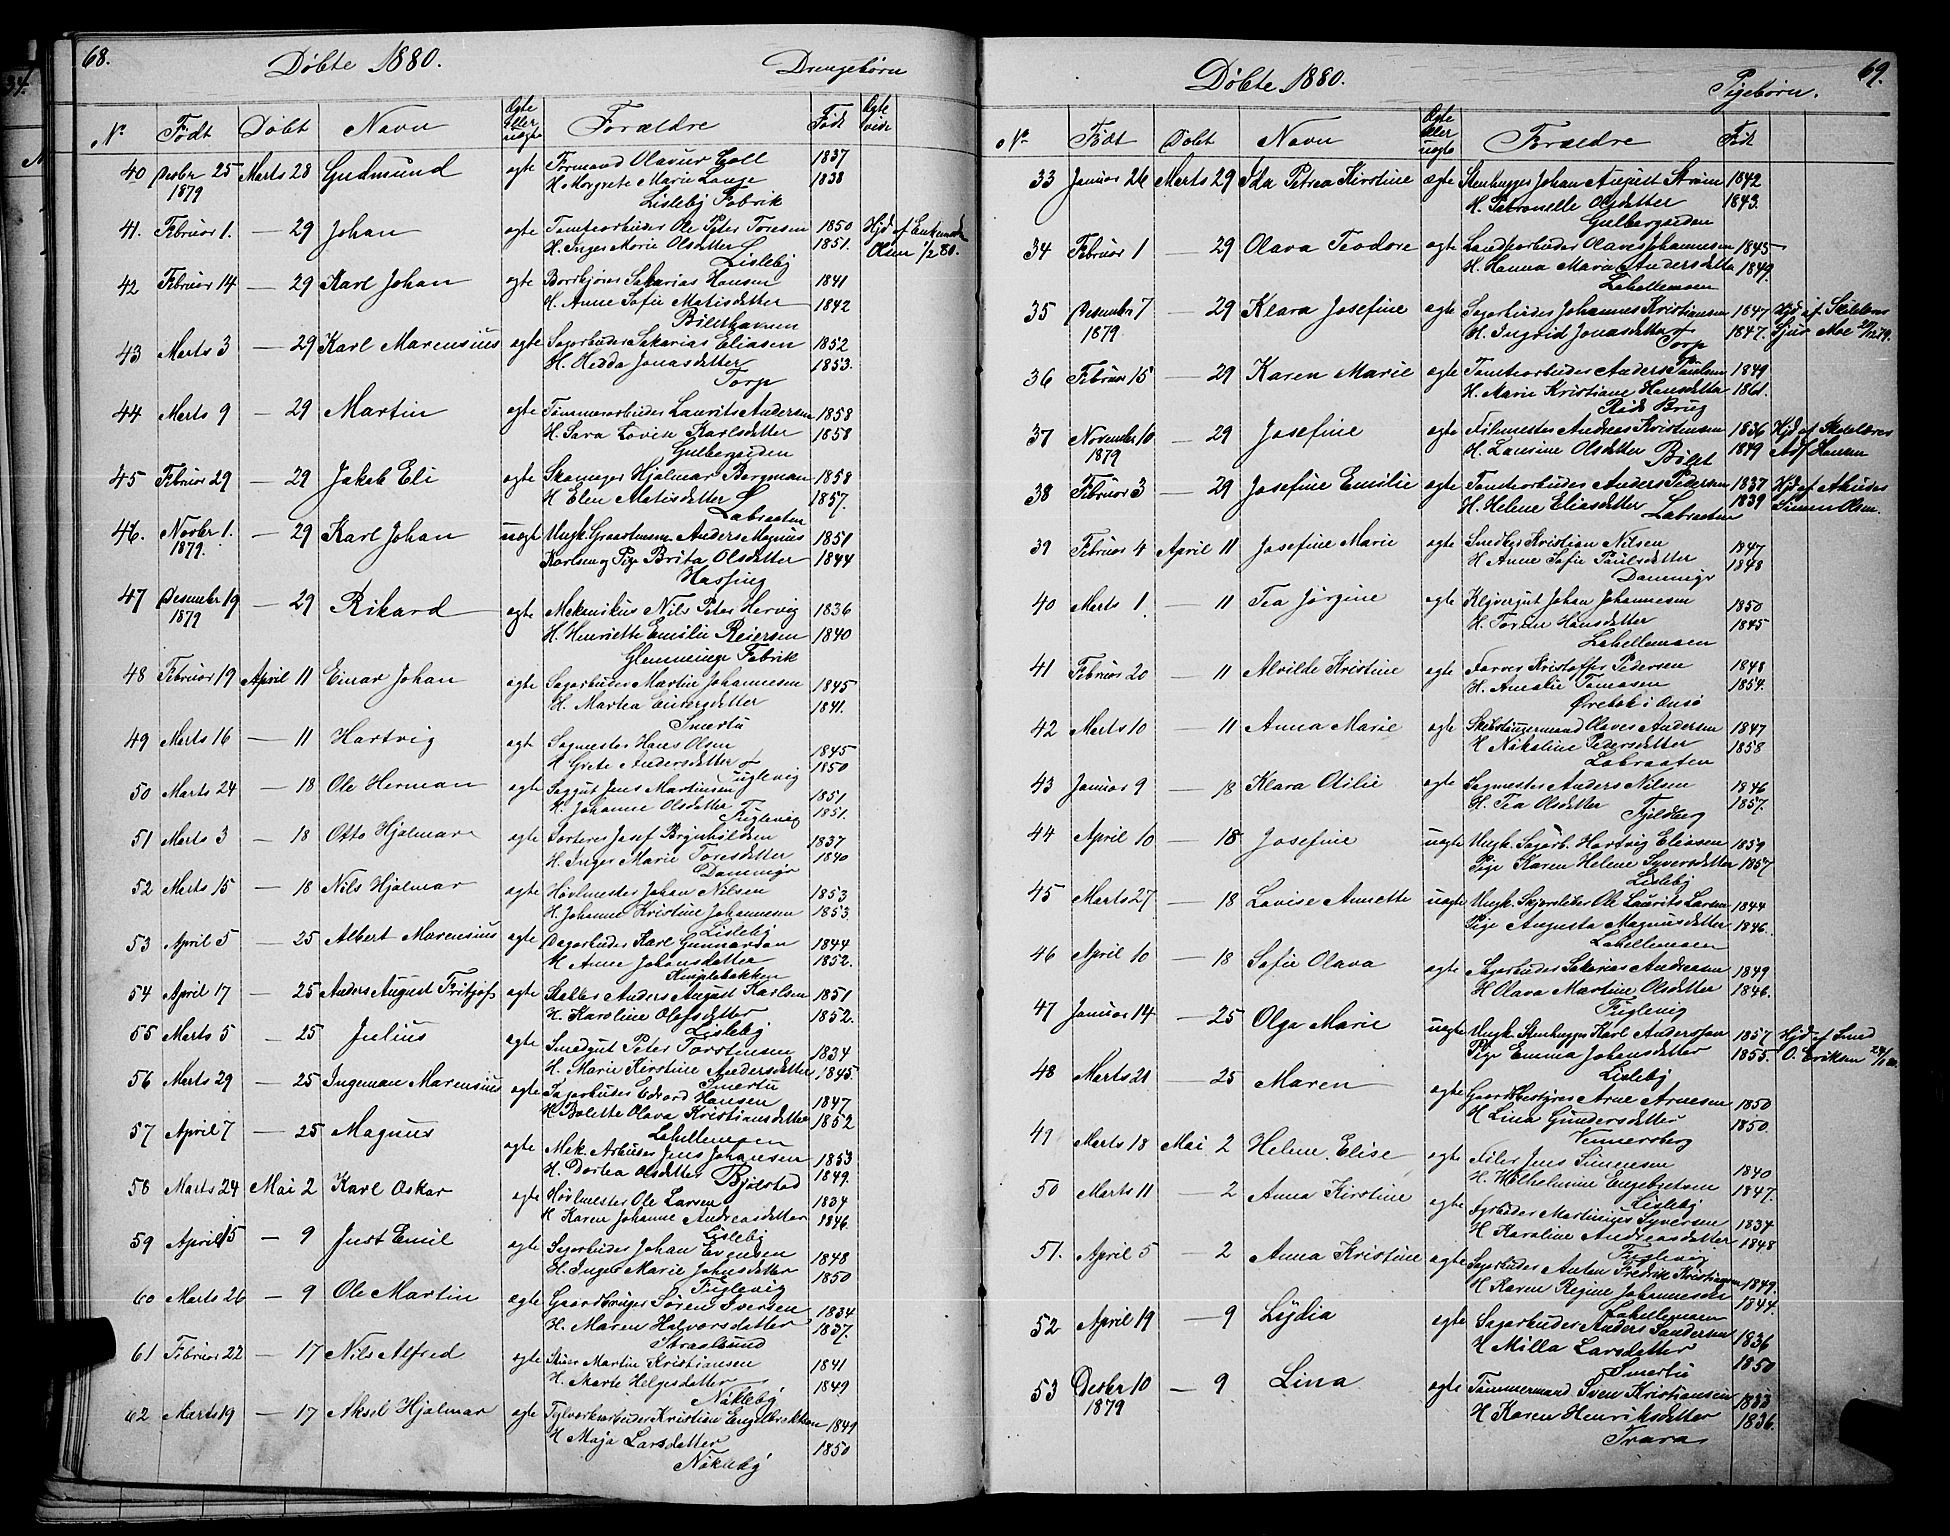 68.
Döbte 1880.
Drengebörn
No Födt Döbt Navn Ægte eller uægte Forældre Födt
40 Desbr 25 1879 Marts 28 Gudmund egte Formand Olavus Holl 1837
H. Margrete Marie Lange 1838
Lisleby Fabrik
41. Februar 1. — 29 Johan egte Tomtearbeider Ole Peter Toresen 1850 Hjd af
H. Inger Marie Olsdetter 1851. Olsen 1/2 80.
Lisleby
42 Februar 14 — 29 Karl Johan egte Sakarias Hansen 1841
H. Anne Sofie Matisdetter 1842
43 Marts 3 — 29 Karl Marensius egte Sagarbeider Sakarias Eliasen 1852
H. Hedda Jonasdetter 1853.
Torp
44 Marts 9 — 29 Martin egte Tömmerarbeider Laurits Andersen 1858
H. Sara Lovise Karlsdetter 1858
Gulbergsiden
45 Februar 29 — 29 Jakob Eli egte Skomager Hjalmar Bergman 1858
H Elen Matisdetter 1857.
Labraaten
46. Novbr 1. 1879. — 29 Karl Johan uegt Ungk. Anders Magnus 1851
Karlsen og Pige Brita Olsdetter 1844
47 Desember 19 1879 — 29 Rikard egte Mekanikus Nils Peter Hervig 1836
H. Henriette Emilie Reiersen 1840
Glemminge Fabrik
48 Februar 19 April 11 Einar Johan egte Sagarbeider Martin Johannesen 1845
H. Martea 1841.
Smertu
49 Marts 16 — 11 Hartvig egte Sagmester Hans Olsen 1845
H Grete Andersdetter 1850
Fuglevig
50 Marts 24 — 18 Ole Herman egte Saggut Jens Martinsen 1851
H. Johanne Olsdetter 1851.
Fuglevig
51 Marts 3 — 18 Otto Hjalmar egte Sorterer Josef Brynhildsen 1837
H. Inger Marie Toresdetter 1840
Dammyr
52 Marts 15 — 18 Nils Hjalmar egte Hövlmester Johan Nilsen 1853
H. Johanne Kristine Johannesen 1853.
Lisleby
53 April 5 — 25 Albert Marensius egte Dagarbeider Karl Gunnarsen 1844
H Anne Johansdatter 1852.
54 April 17 — 25 Anders August Fritjof egte Anders August Karlsen 1851
H. Karoline Olafsdetter 1852.
Lisleby
55 Marts 5 — 25 Julius egte Smedgut Peter Torstensen 1834
H. Marie Kirstine Andersdetter 1845.
Smertu
56 Marts 29 — 25 Ingeman Marensius egte Sagarbeider Edvard Hansen 1847
H Bolette Olava Kristiansdetter 1852
Lahellemoen
57 April 7 — 25 Magnus egte Mek. Arbeider Jens Johansen 1853
H. Dortea Olsdetter 1849.
Bjölstad
58 Marts 24 Mai 2 Karl Oskar egte Hövlmester Ole Larsen 1834
H Karen Johanne Andreasdetter 1846.
Lisleby
59 April 15 — 9 Just Emil egte Sagarbeider Johan Evensen 1848
H. Inger Marie Johnsdetter 1850
Fuglevig
60 Marts 26 — 9 Ole Martin egte Gaardbruger Sören Iversen 1834
H. Maren Halvorsdetter 1837.
61 Februar 22 — 17 Nils Alfred egte Martin Kristiansen 1841
H. Marte Helgesdetter 1849
Nökleby
62 Marts 19 — 17 Aksel Hjalmar egte Kristian Engelbrektsen 1849
H Maja Larsdatter 1850
Nökleby
69.
Döbte 1880.
Pigebörn.
No Födt Döbt Navn Ægte eller uægte Forældre Födt
33 Januar 26 Marts 29 Ida Petrea Kirstine ægte Stenhugger Johan August Ström 1842
H. Petronelle Olsdetter 1843.
Gulbergsiden
34 Februar 1 — 29 Olava Teodore egte Landarbeider Olaves Johannesen 1845
H. Hanna Marie Andersdetter 1849.
Lahellemoen
35 Desember 7 1879 — 29 Klara Josefine egte Sagarbeider Johannes Kristiansen 1847 Hjd af Skolelærer
H. Ingrid Jonasdetter 1847. Moe
Torp
36 Februar 15 — 29 Karen Marie egte Tomtearbeider Anders Paulsen 1849
H. Marie Kristiane Hansdetter 1861.
Röds Brug
37 November 10 1879 — 29 Josefine egte Filemester Andreas Kristensen 1836 Hjd af Skolelærer
H. Laurine Olsdetter 1849 Hansen
38 Februar 3 — 29 Josefine Emilie egte Tomtearbeider Anders Pedersen 1837 Hjd af Arbeider
H. Helene Eliasdetter 1839 Simen Olsen.
Labraaten
39 Februar 4 April 11 Josefine Marie egte Smed Kristian Nilsen 1847
H Anne Sofie Paulsdetter 1848
Dammyr
40 Marts 1 — 11 Tea Jörgine egte Johan Johannesen 1850
H. Torine Hansdetter 1845
Lahellemoen
41 Februar 20 — 11 Alvilde Kristine egte Farver Kristoffer Pedersen 1848
H. Amalie Tomasen 1854.
Örebek i Onsö
42 Marts 10 — 11 Anna Marie egte Skibstömmermand Olaves Andersen 1847
H Nikoline Pedersdetter 1858
Labraaten
43 Januar 9 — 18 Klara Otilie egte Sagmester Anders Nilsen 1846
H. Tea Olsdetter 1857.
Fjeldberg
44 April 10 — 18 Josefine uegte Ungk. Sagarb. Hartvig Eliasen 1859
Pige Karen Helene Syversdetter 1857
Lisleby
45 Marts 27 — 18 Lovise Annette uegte Ungk. Ole Laurits Larsen 1844
Pige Augusta Magnusdetter 1846.
Lahellemoen
46 April 10 — 18 Sofie Olava egte Sagarbeider Sakarias Andreasen 1849
H Olava Martine Olsdetter 1846.
Fuglevig
47 Januar 14 — 25 Olga Marie uegte Ungk. Stenhugger Karl Andersson 1857 Hjd af Smed
Pige Emma Johansdetter 1855. O. Eriksen
Lisleby
48 Marts 21 — 25 Maren egte Gaardbestyrer Arne Arnesen 1850
H Lina Gundersdetter 1850.
Vennersberg
49 Marts 18 Mai 2 Helene Elise egte Filer Jens Simensen 1840
H. Wilhelmine Engebretsen 1847.
Lisleby
50 Marts 11 — 2 Anna Kirstine egte Arbeider Martinius Syversen 1834
H Karoline Andreasdetter 1848
Fuglevig
51. April 5 — 2 Anna Kristine egte Sagarbeider Anton Fredrik Kristiansen 1849.
H Karen Regine Johannesdetter 1844.
Lahellemoen
52 April 19 — 9 Lydia egte Sagarbeider Anders Sandersen 1836
H Milla Larsdetter 1850
Smertu
53 Desbr 10 1879 — 9 Lina egte Tömmermand Sven Kristiansen 1833
H Karen Henriksdetter 1836.
Trara